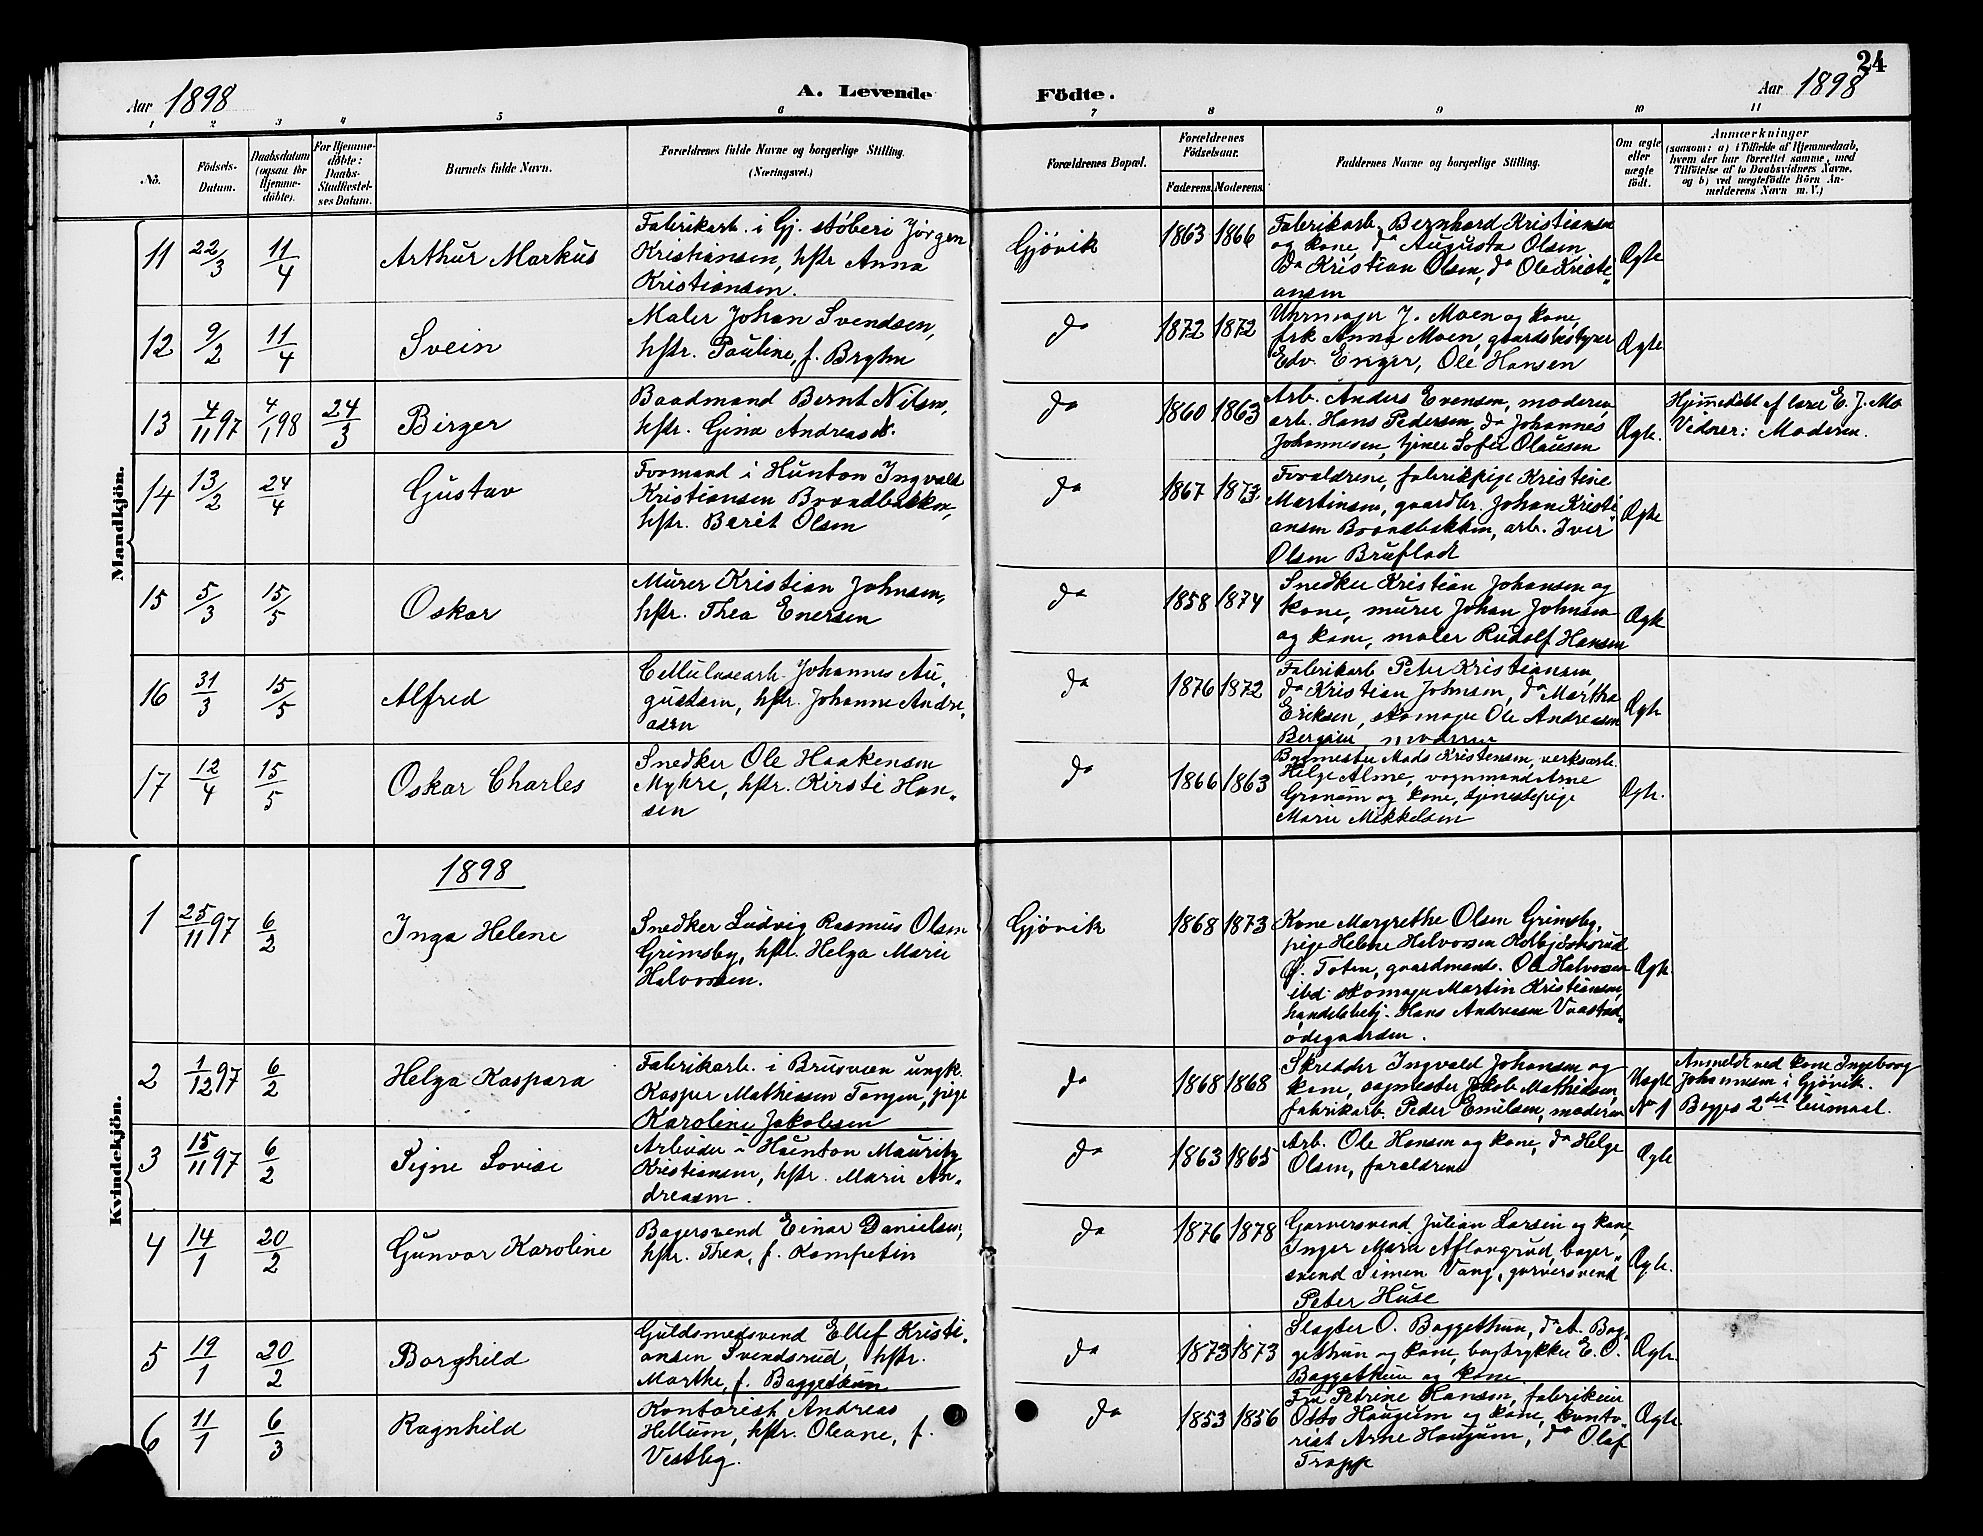 24
Aar 1898
A. Levende
Födte.
Aar 1898
1 2 3 4 5 6 7 8 9 10 11
No.
Födsels-
Datum.
Daabsdatum
(ogsaa for
Hjemme-
döbte).
For Hjemme-
döbte:
Daabs-
Stadfæstel-
ses Datum.
Barnets fulde Navn.
Forældrenes fulde Navne og borgerlige Stilling.
(Næringsvei.)
Forældrenes Bopæl.
Forældrenes
Födselsaar.
Faderens. Moderens.
Faddernes Navne og borgerlige Stilling.
Om ægte
eller
uægte
födt.
Anmærkninger
(saasom: a) i Tilfælde af Hjemmedaab,
hvem der har forrettet samme, med
Tilföielse af to Daabsvidners Navne,
og b) ved uægtefödte Börn An-
melderens Navn m. V.)
Mandkjön.
11 22/3 11/4 Arthur Markus
Fabrikarb. i Gj. støberi Jørgen
Kristiansen, hstr Anna
Kristiansen.
Gjøvik 1863 1866
Fabrikarb. Bernhard Kristiansen
og kone, do Augusta Olsen,
do Kristian Olsen, do Ole Kristi-
ansen
Ægte
12 9/2 11/4 Svein
Maler Johan Svendsen,
hstr. Pauline, f. Bryhn
do 1872 1872
Uhrmager J. Moen og kone,
frk Anna Moen, gaardsbestyrer
Edv. Enger, Ole Hansen
Ægte
13 4/11 97 4/1 98 24/3 Birger
Baadmand Bernt Nilsen,
hstr. Gina Andreasd.
do 1860 1863
Arb. Anders Evensen, moderen,
arb. Hans Pedersen, do Johannes
Johannesen, tjener Sofie Olausen
Ægte.
Hjemmedøbt af lærer E. J. Mo
Vidner: Moderen.
14 13/2 24/4 Gustav
Formand i Hunton Ingvald
Kristiansen Brandbakken,
hstr. Berit Olsen
do 1867 1873
Forældrene, fabrikpige Kristine
Martinsen, gaardbr. Johan Kristi-
ansen Brandbakken, arb. Iver
Olsen Brufladt
Ægte
15 5/3 15/5 Oskar
Murer Kristian Johnsen,
hstr. Thea Enersen
do 1858 1874
Snedker Kristian Johansen og
kone, murer Johan Johnsen
og kone, maler Rudolf Hansen
Ægte
16 31/3 15/5 Alfred
Cellulosearb. Johannes Au-
gustsen, hstr. Johanne Andre-
asen
do 1876 1872
Fabrikarb. Peter Kristiansen,
do Kristian Johnsen, do Martha
Eriksen, skomager Ole Andreasen
moderen
Ægte
17 12/4 15/5 Oskar Charles
Snedker Ole Haakensen
Myhre, hstr. Kirsti Han-
sen
do 1866 1863
Mads Kristensen, verksarb.
Helge Alme, vognmand Arne
og kone, tjenestepige
Marie Mikkelsen
Ægte.
Kvindekjön.
1898
1 25/11 97 6/2 Inga Helene
Snedker Ludvig Rasmus Olsen
Grimsby, hstr. Helga Marie
Halvorsen.
Gjøvik 1868 1873
Kone Margrethe Olsen Grimsby,
pige Helene Halvorsen Kolbjørnsrud
Ø. Toten, gaardmands. Ole Halvorsen
ibd. skomager Martin Kristiansen,
handelsbetj. Hans Andreasen
ødegaarden.
Ægte
2 1/12 97 6/2 Helga Kaspara
Fabrikarb. i Brusveen ungk.
Kasper Mathiesen Tangen, pige
Karoline Jakobsen
do 1868 1868
Skredder Ingvald Johansen og
kone, sagmester Jakob Mathiesen,
fabrikarb. Peder Emilsen, moderen
Uægte
No 1
Anmeldt ved kone Ingeborg
Johannesen i Gjøvik.
Begges 2det leiermaal.
3 15/11 97 6/2 Signe Lovise
Arbeider i Hunton Mauritz
Kristiansen, hstr. Marie An-
dreasen.
do 1863 1865
Arb. Ole Hansen og kone, do Helge
Olsen, forældrene
Ægte
4 14/1 20/2 Gunvor Karoline
Bagersvend Einar Danielsen,
hstr. Thea, f.
do 1876 1878
Garversvend Julian Larsen og kone,
Inger Marie Aflangrud, bager-
svend Simen Vang, garversvend
Peter Huse
Ægte.
5 19/1 20/2 Borghild
Guldsmedsvend Ellef Kristi-
ansen Svendsrud, hstr.
Marthe, f. Baggethun
do 1873 1873
Slagter O. Baggethun, do A. Bag-
gethun og kone, bogtrykker E. O.
Baggethun og kone
Ægte.
6 11/1 6/3 Ragnhild
Kontorist Andreas
Hellum, hstr. Oleane, f.
Vestby.
do 1853 1856
Fru Petrine Hansen, fabrikeier
Otto Haugum og kone, konto-
rist Arne Haugum, do Olaf
Trapp
Ægte.